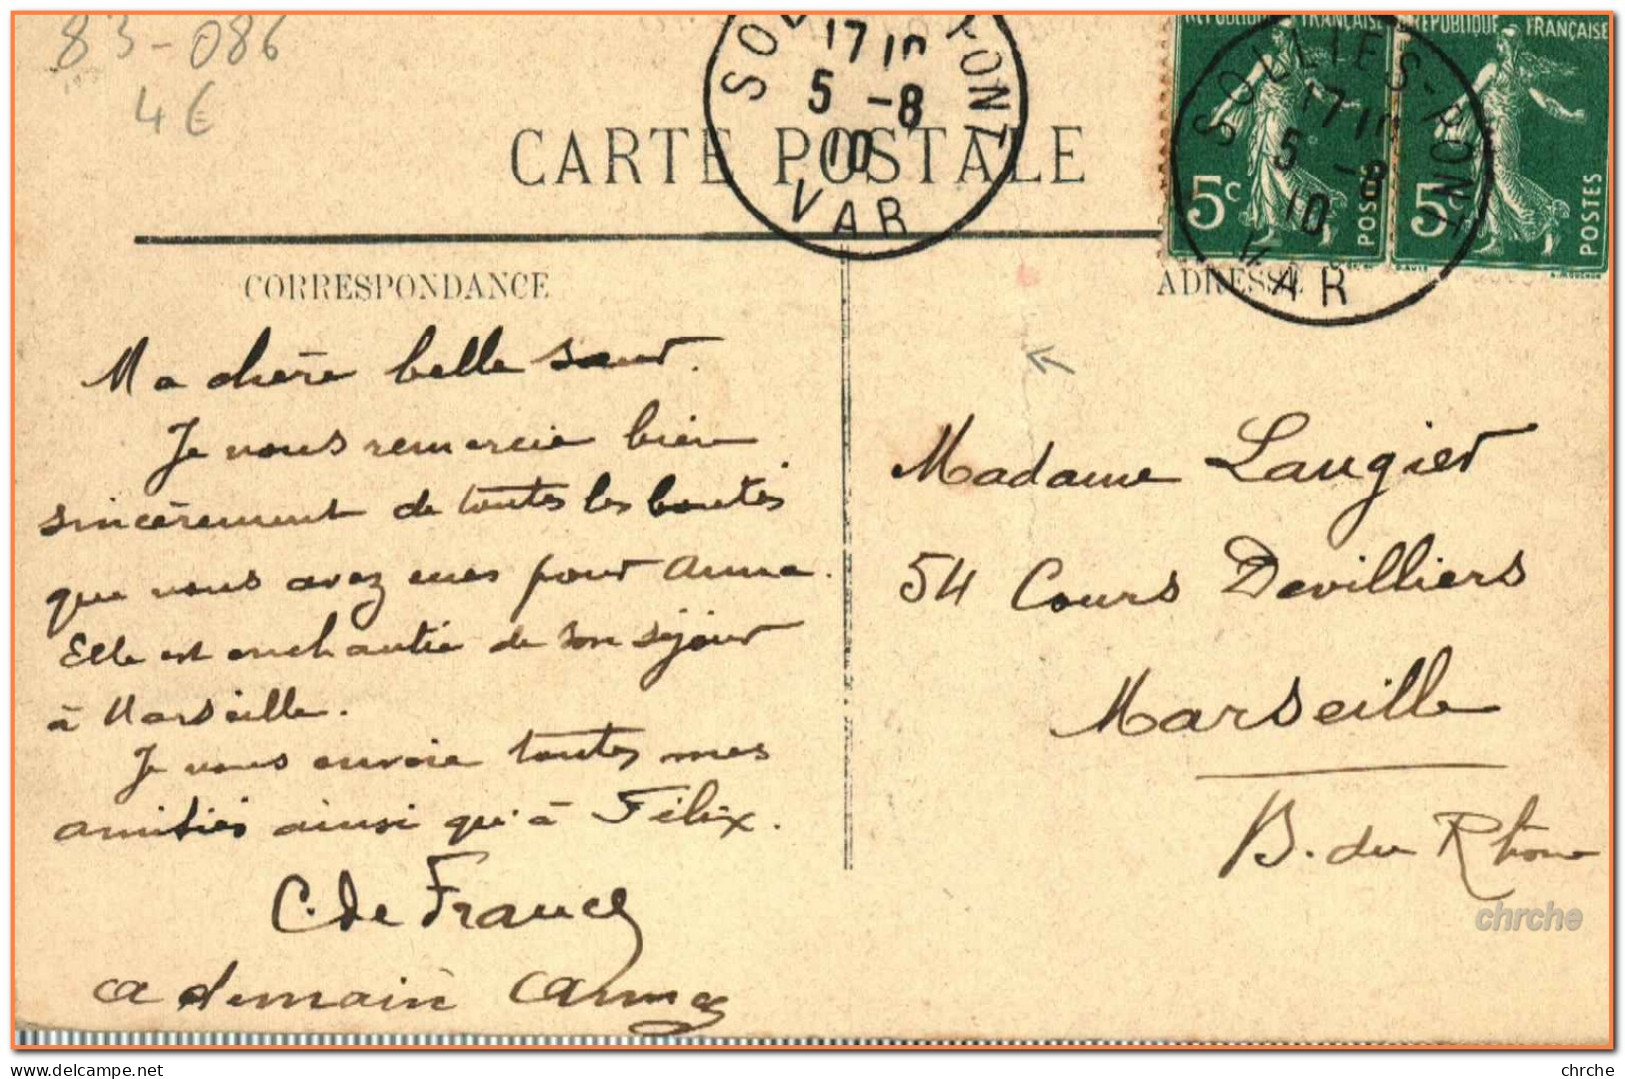 83-086
4€
SOLLIES-PONT
17 10
5 -8
10
VAR
RÉPUBLIQUE FRANÇAISE
RÉPUBLIQUE FRANÇAISE
5c POSTES
5c POSTES
SOLLIES-PONT
17 10
5 -8
10
VAR
CARTE POSTALE
CORRESPONDANCE
ADRESSE
Ma chère belle sœur.
Je vous remercie bien
sincèrement de toutes les bontés
que vous avez eues pour Anna.
Elle est enchantée de son séjour
à Marseille.
Je vous envoie toutes mes
amitiés ainsi qu'à Félix.
C. de France
a demain Anna
Madame Laugier
54 Cours Devilliers
Marseille
B. du Rhône
chrche
delcampe.net
chrche